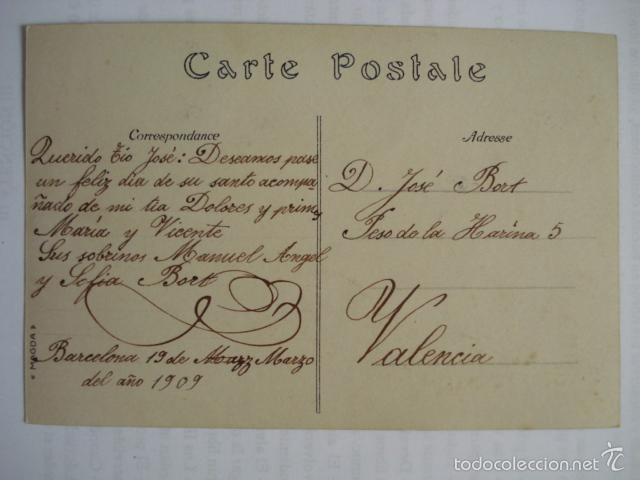 Carte Postale
Correspondance
Querido tío José: Deseamos pase
un feliz dia de su santo acompa
ñado de mi tia Dolores y primos
María y Vicente
Sus sobrinos Manuel Angel
y Sofia Bort
Barcelona 19 de Mazz Marzo
del año 1909
« MAGDA »
Adresse
D. José Bort
Peso de la Harina 5
Valencia
todocoleccion.net